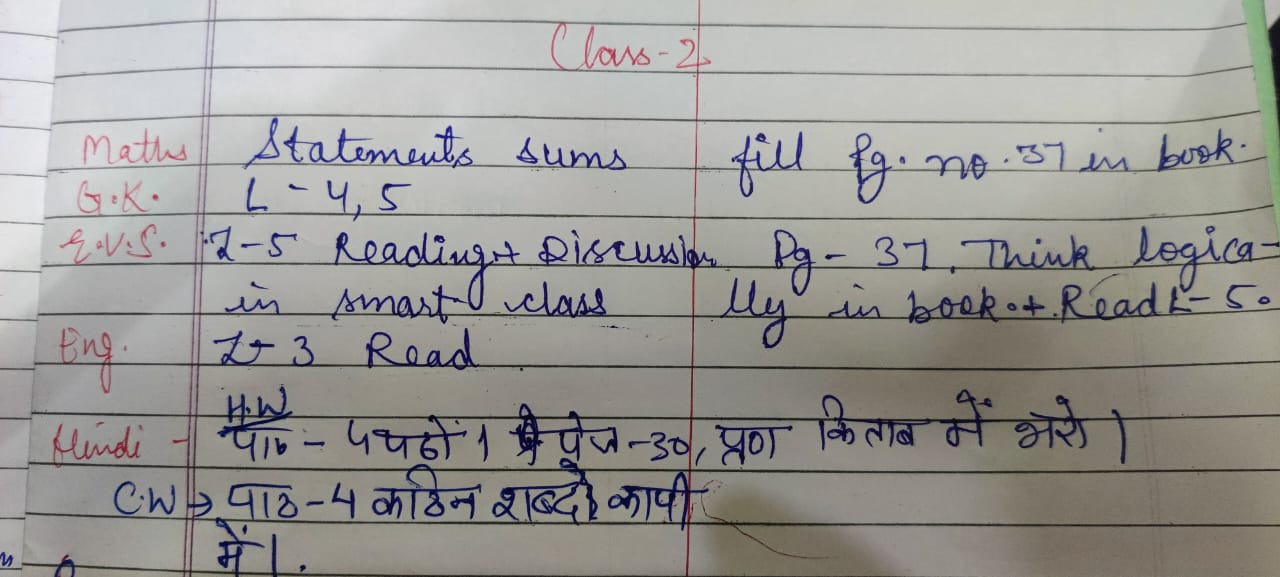 Class-2
Maths Statements sums fill Pg. no. 37 in book.
G.K. L-4,5
E.V.S. L-5 Reading + Discussion Pg-37, Think logica-
in smart class lly in book.+ Read L-5.
Eng. L-3 Read
H.W
Hindi - पाठ-4 पढो। पेज-30, किताब में भरो।
C.W → पाठ-4 कठिन शब्द कापी
में।